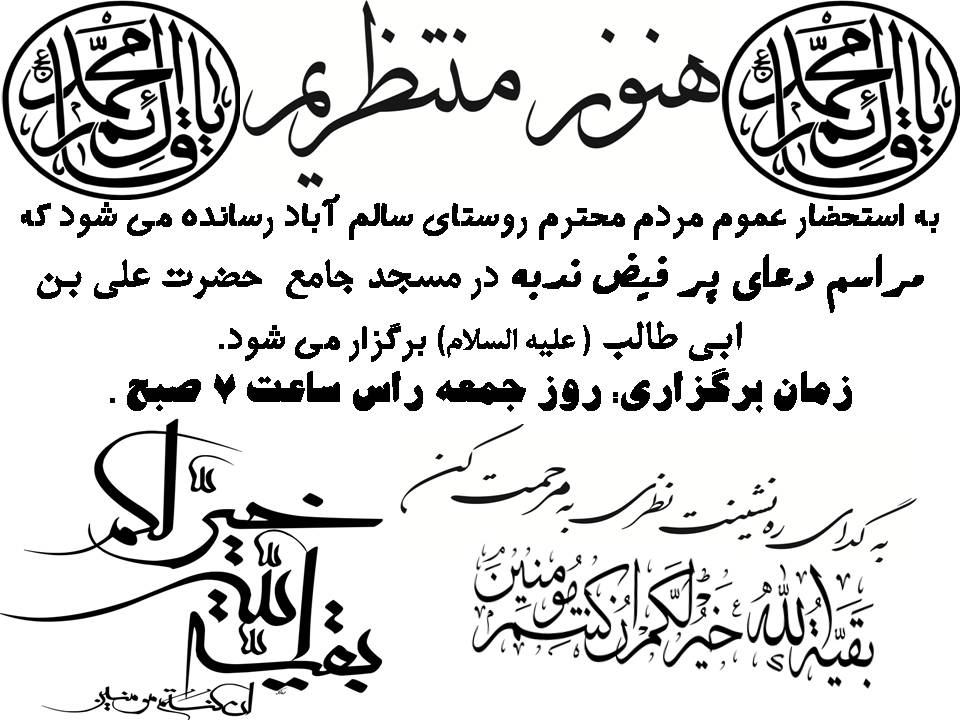 هنوز منتظریم
یا قائم آل محمد
یا قائم آل محمد
به استحضار عموم مردم محترم روستای سالم آباد رسانده می شود که
مراسم دعای پر فیض ندبه در مسجد جامع حضرت علی بن
ابی طالب ( علیه السلام) برگزار می شود.
زمان برگزاری: روز جمعه راس ساعت ۷ صبح .
به گدای ره نشینت نظری به مرحمت کن
بقیة الله خیر لکم ان کنتم مومنین
بقیة الله خیر لکم
ان کنتم مومنین